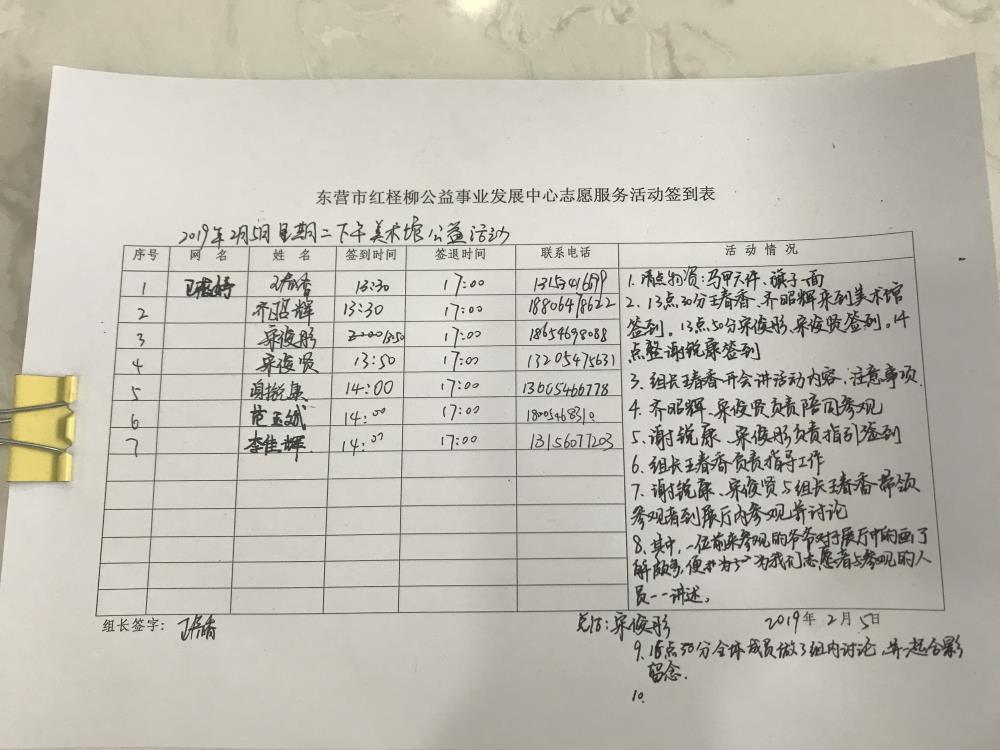 东营市红柽柳公益事业发展中心志愿服务活动签到表
2019年2月5日星期二下午美术馆公益活动
序号 网 名 姓 名 签到时间 签退时间 联系电话 活动情况
1 王春香 13:30 17:00
2 齐昭辉 13:30 17:00 18806478622
3 宋俊彤 13:50 17:00 18654698088
4 宋俊贤 13:50 17:00 13205475631
5 谢锐康 14:00 17:00 13005466778
6 14:00 17:00
7 李佳辉 14:00 17:00 13156077203
1. 清点物资:马甲六件、旗子一面
2. 13点30分王春香、齐昭辉来到美术馆
签到。13点50分宋俊彤、宋俊贤签到。14
点整谢锐康签到
3. 组长王春香开会讲活动内容、注意事项.
4. 齐昭辉、宋俊贤负责陪同参观
5. 谢锐康、宋俊彤负责指引签到
6. 组长王春香负责指导工作
7. 谢锐康、宋俊贤与组长王春香带领
参观者到展厅内参观并讨论
8. 其中,一位前来参观的爷爷对于展厅中的画了
解颇多,便 为我们志愿者与参观的人
员一一讲述。
组长签字: 王春香 总结:宋俊彤 2019年2月5日
9. 16点30分全体成员做了组内讨论,并一起合影
留念.
10.